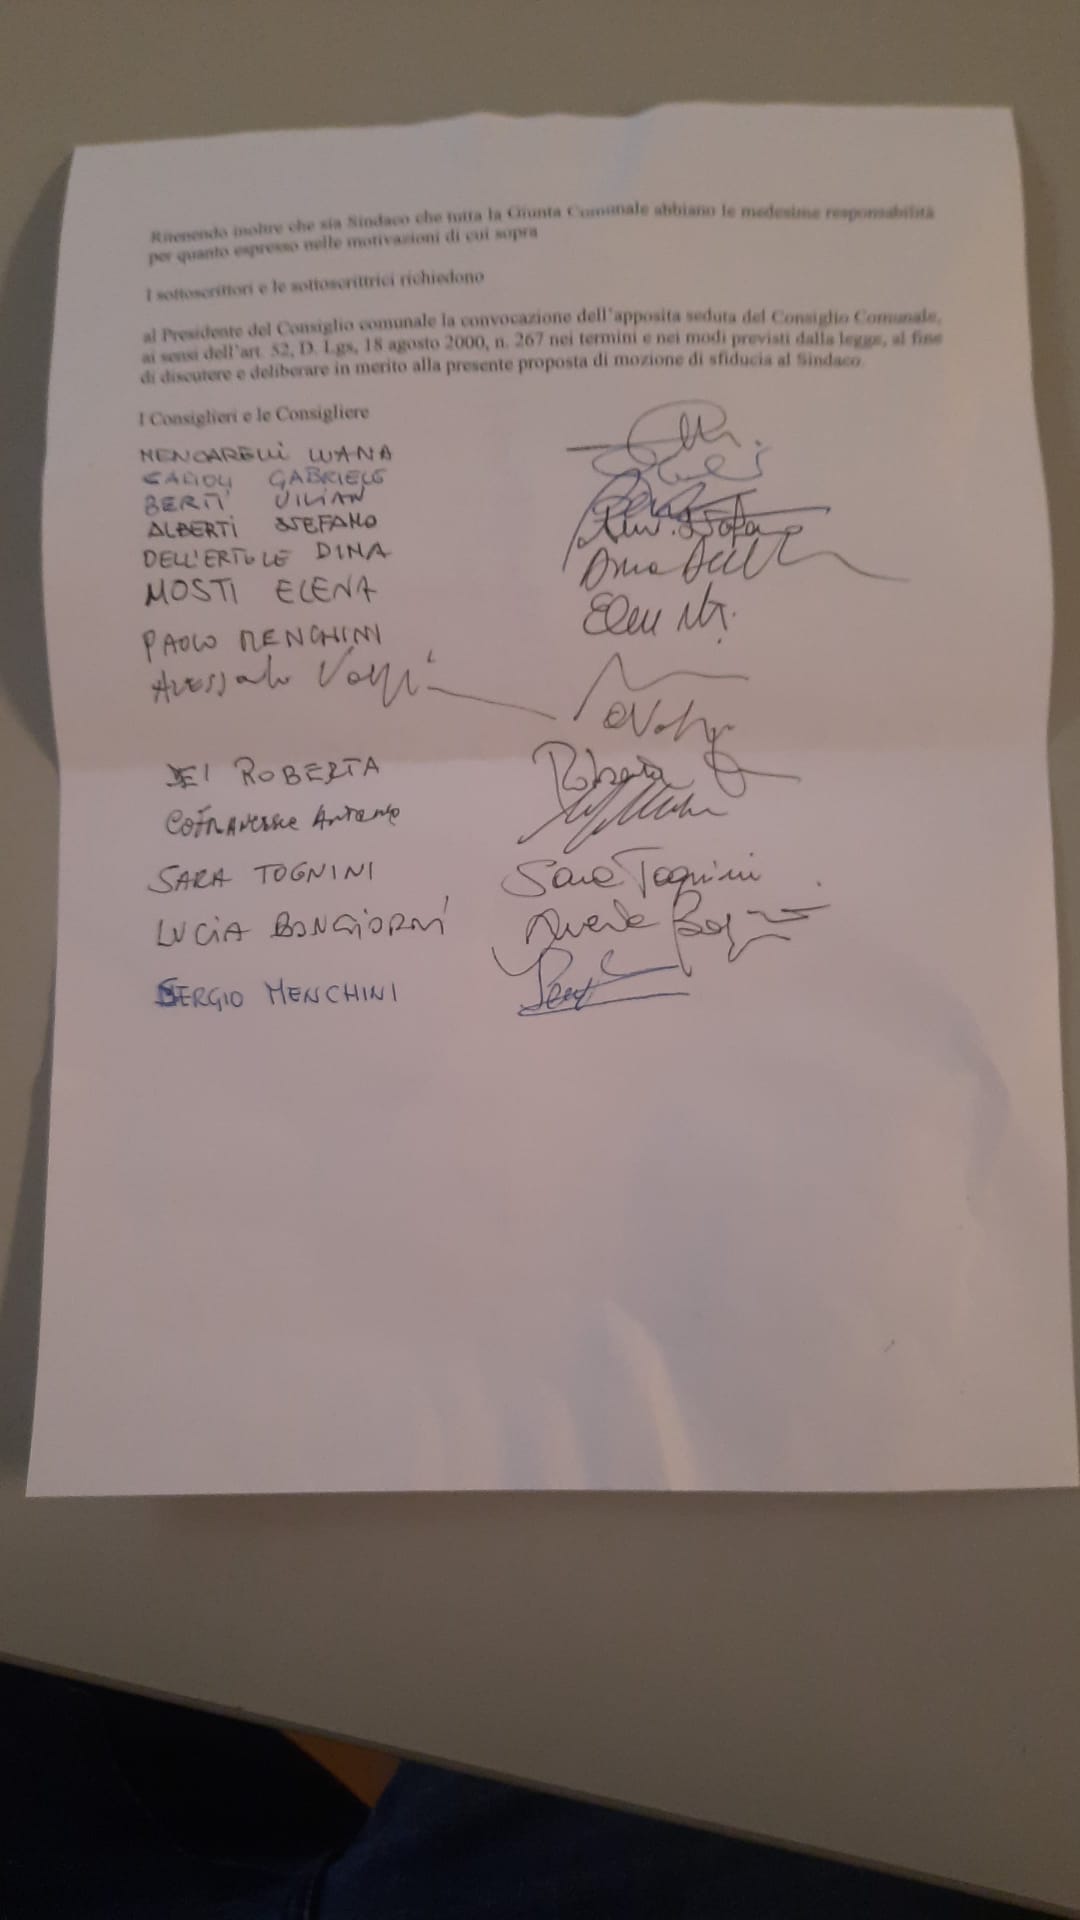 Ritenendo inoltre che sia Sindaco che tutta la Giunta Comunale abbiano le medesime responsabilità
per quanto espresso nelle motivazioni di cui sopra
I sottoscrittori e le sottoscrittrici richiedono
al Presidente del Consiglio comunale la convocazione dell'apposita seduta del Consiglio Comunale,
ai sensi dell'art. 52, D. Lgs, 18 agosto 2000, n. 267 nei termini e nei modi previsti dalla legge, al fine
di discutere e deliberare in merito alla presente proposta di mozione di sfiducia al Sindaco.
I Consiglieri e le Consigliere
MENCARELLI LUANA
GABRIELE
BERTI UILIAN
ALBERTI STEFANO
DELL'ERTOLE DINA
MOSTI ELENA Elena
PAOLO MENCHINI
Alessandro Volpi
DEI ROBERTA Roberta
COFRANCESCO Antonio
SARA TOGNINI Sara Tognini
LUCIA BONGIORNI
SERGIO MENCHINI